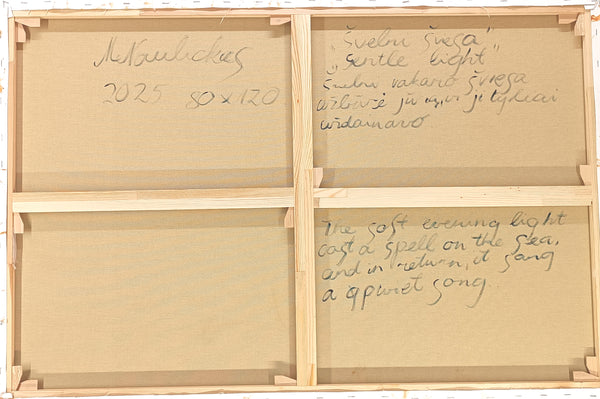 2025 80 x 120
„Švelni šviesa"
„Gentle light"
švelni vakaro šviesa
jūrą, ir ji tyliai
uždainavo
The soft evening light
cast a spell on the sea,
and in return, it sang
a qpuiet song.